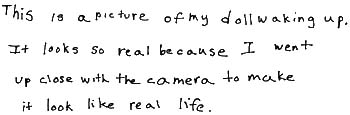 This is a picture of my doll waking up.
It looks so real because I went
up close with the camera to make
it look like real life.